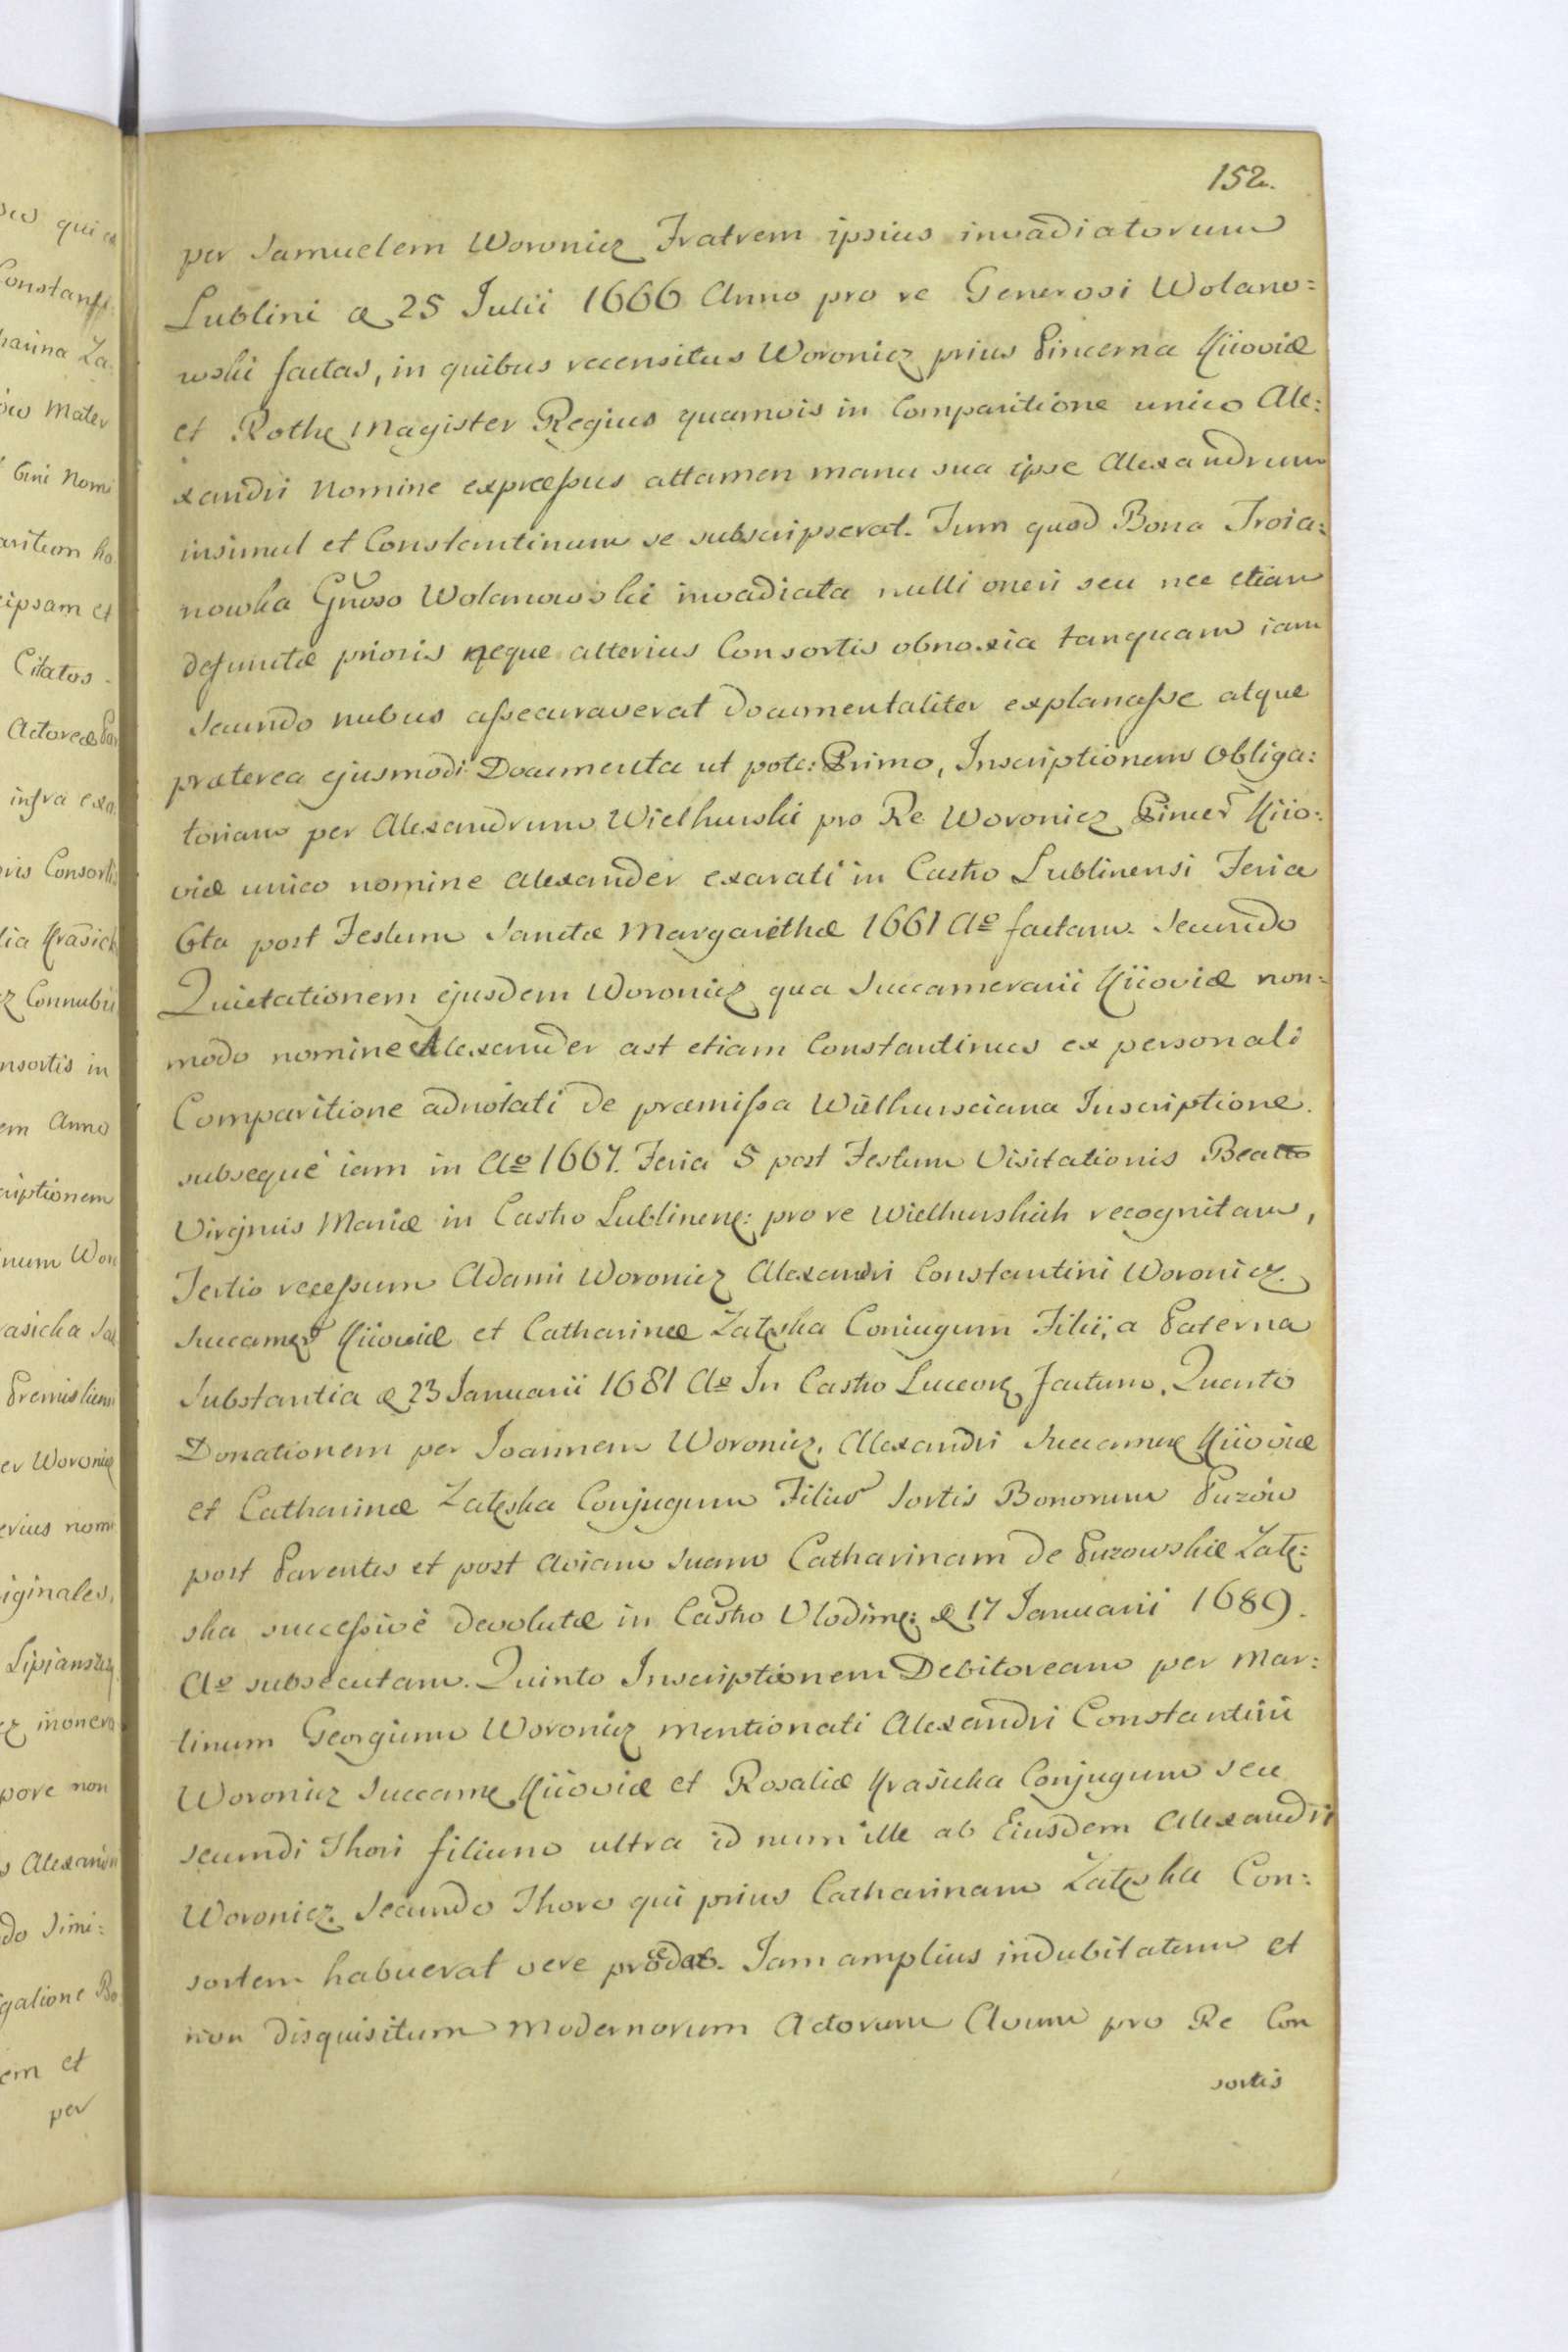 152.
per Samuelem Woronicz Fratrem ipsius invadiatorum
Lublini æ 25 Julii 1666 Anno pro re Generosi Wolano:
wski factas, in quibus recensitus Woronicz prius Pincerna Kiioviæ
et Rothe Magister Regius quamvis in Comparitione unico Ale:
xandri Nomine expræssus attamen manu sua ipse Alexandrum
insimul et Constantinum se subscripserat. Tum quod Bona Troia:
nowka Gnoso Wolanowski invadiata nulli oneri seu nec etiam
defunctæ prioris neque alterius Consortis obnoxia tanquam iam
secundo nubus assecuraverat Documentaliter explanasse atque
præterea ejusmodi Documenta ut pote: Primo, Inscriptionem Obliga:
toriam per Alexandrum Wielhurski pro Re Woronicz Pincer Kiio:
viæ unico nomine Alexander exarati in Castro Lublinensi Feria
6ta post Festum Sanctæ Margarethæ 1661 Ao factam. Secundo
Quietationem ejusdem Woronicz qua Succamerarii Kiioviæ non:
modo nomine Alexander ast etiam Constantinus ex personali
Comparitione adnotati de præmissa Wielhursciana Inscriptione.
subseque iam in Ao 1667. Feria 5 post Festum Visitationis Beatto
Virginis Mariæ in Castro Lublinen: pro re Wielhurskich recognitam,
Tertio recessum Adami Woronicz Alexandri Constantini Woronicz
Succamer Kiioviæ et Catharinæ Zateska Coniugum Filii, a Paterna
Substantia æ 23 Januarii 1681 Ao In Castro Luceor factum, Quarto
Donationem per Joannem Woronicz, Alexandri Succamer Kiioviæ
et Catharinæ Zateska Conjugum Filius Sortis Bonorum Puzów
post Parentes et post Aviam suam Catharinam de Puzowskie Zate:
ska successive devolutæ in Castro Vlodim: æ 17 Januarii 1689.
Ao subsecutam. Quinto Inscriptionem Debitoream per Mar:
tinum Georgium Woronicz mentionati Alexandri Constantini
Woronicz Succame Kiioviæ et Rosaliæ Krasicka Conjugum seu
secundi Thori filium ultra id num ille ab Eiusdem Alexandri
Woronicz Secundo Thoro qui prius Catharinam Zateska Con:
sortem habuerat vere prodat. Jam amplius indubitatum et
non disquisitum Modernorum Actorum Avum pro Re Con
sortis
qui
Constant
harina Za
Mater
Nomi
arition
ipsam et
Citatos
Actorea
infra
Consortis
lia Krasick
Connubii
nsortis in
em Anno
riptionem
num Wor
rasicka
Premislien
er Woronicz
erius nom
riginales,
inonera
pore non
s Alexandri
do Simi:
gatione Bo
em et
per